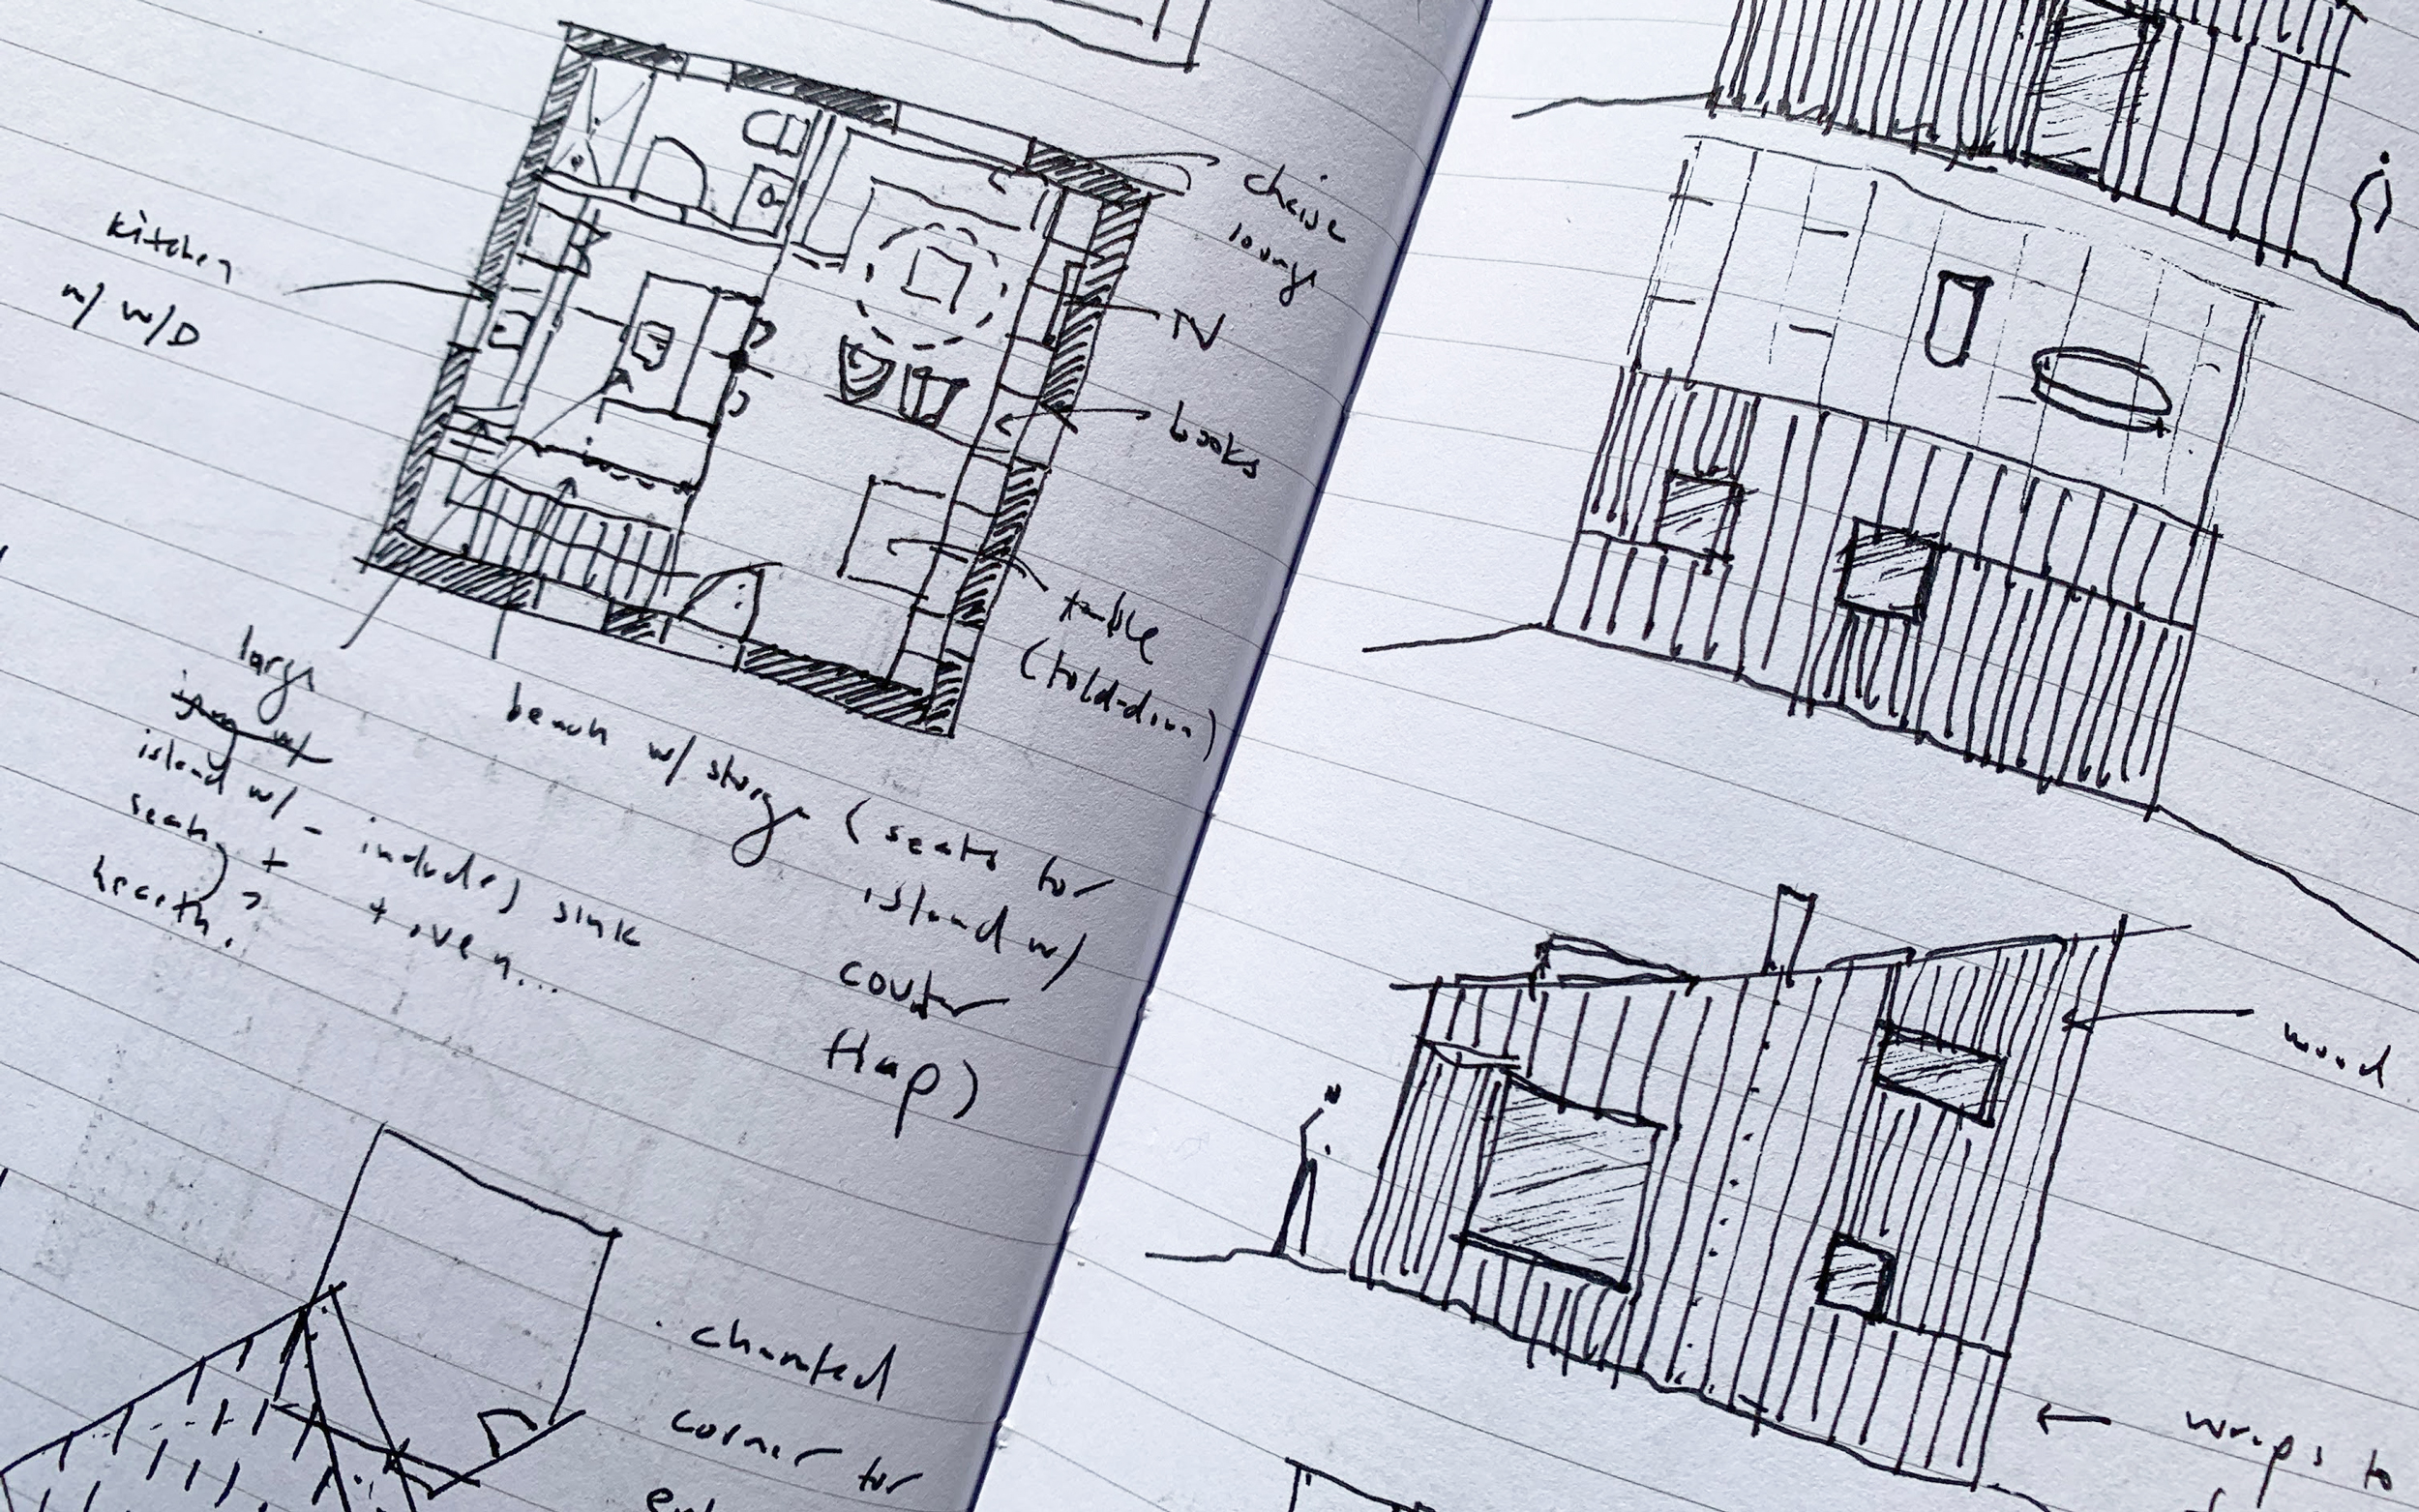 kitchen
w/ W/D
chaise
lounge
TV
books
table
(fold-down)
large
island w/
seating +
hearth.
- includes sink
+ oven...
bench w/ storage (seats for
island w/
counter
flap)
. chamfed
corner for
wood
← wraps to